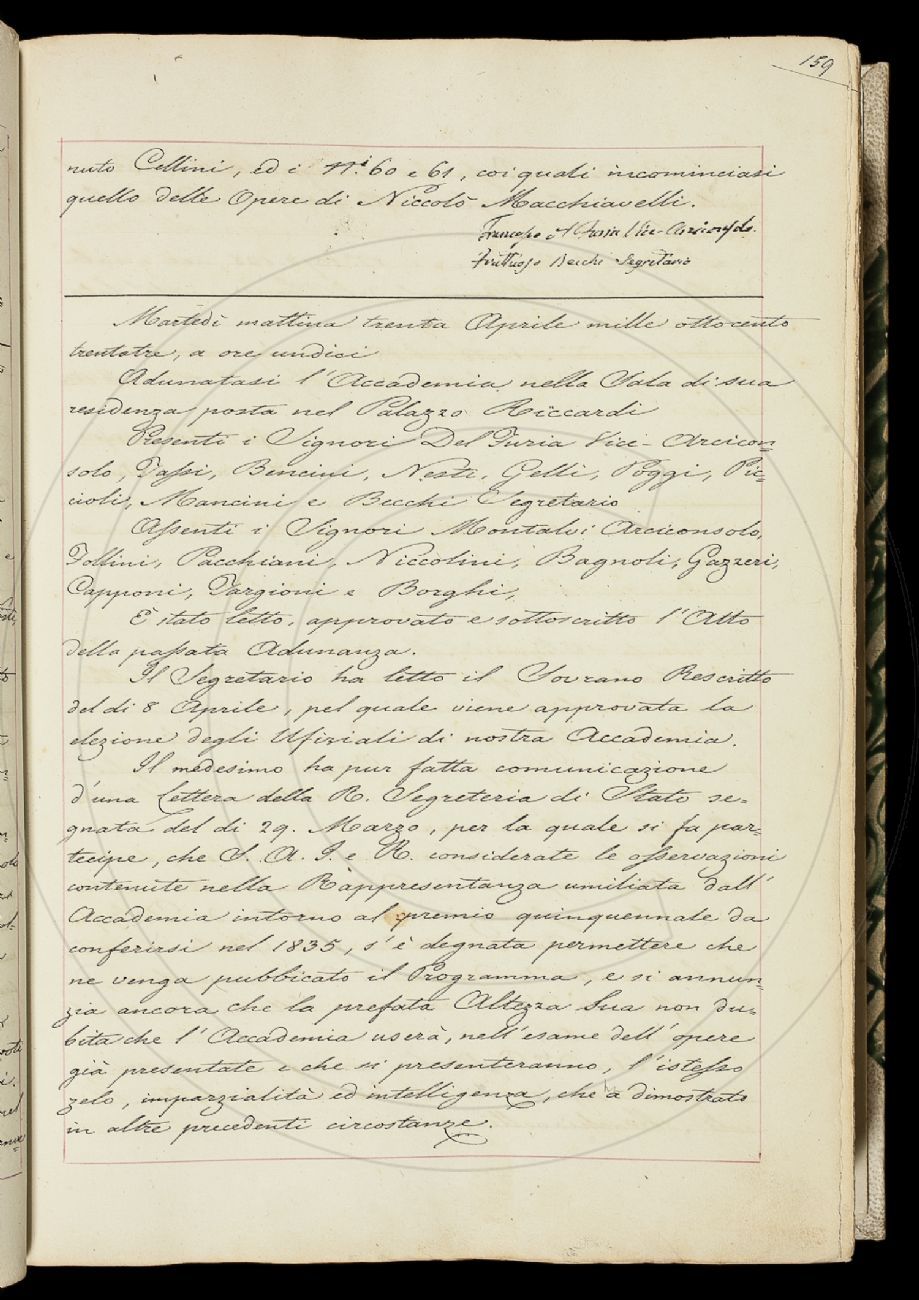 159
nuto Cellini, ed i N.i 60 e 61, coi quali incominciasi
quello delle Opere di Niccolò Macchiavelli.
Vice-Arciconsolo.
Fruttuoso Becchi Segretario
Martedì mattina trenta Aprile mille ottocento
trentatre, a ore undici
Adunatasi l'Accademia nella Sala di sua
residenza posta nel Palazzo Riccardi
Presenti i Signori Del Furia Vice-Arcicon=
solo, Tassi, Bencini, Nesti, Gelli, Poggi, Pic=
cioli, Mancini e Becchi Segretario
Assenti i Signori Montalvi Arciconsolo,
Follini, Pacchiani, Niccolini, Bagnoli, Gazzeri,
Capponi, Targioni e Borghi,
È stato letto, approvato e sottoscritto l'Atto
della passata Adunanza.
Il Segretario ha letto il Sovrano Rescritto
del dì 8 Aprile, pel quale viene approvata la
elezione degli Ufiziali di nostra Accademia.
Il medesimo ha pur fatta comunicazione
d'una Lettera della R. Segreteria di Stato se=
gnata del dì 29. Marzo, per la quale si fa par=
tecipe, che S. A. I. e R. considerate le osservazioni
contenute nella Rappresentanza umiliata dall'
Accademia intorno al premio quinquennale da
conferirsi nel 1835, s'è degnata permettere che
ne venga pubbicato il Programma, e si annun=
zia ancora che la prefata Altezza Sua non du=
bita che l'Accademia userà, nell'esame dell'opere
già presentate e che si presenteranno, l'istesso
zelo, imparzialità ed intelligenza, che ha dimostrato
in altre precedenti circostanze.